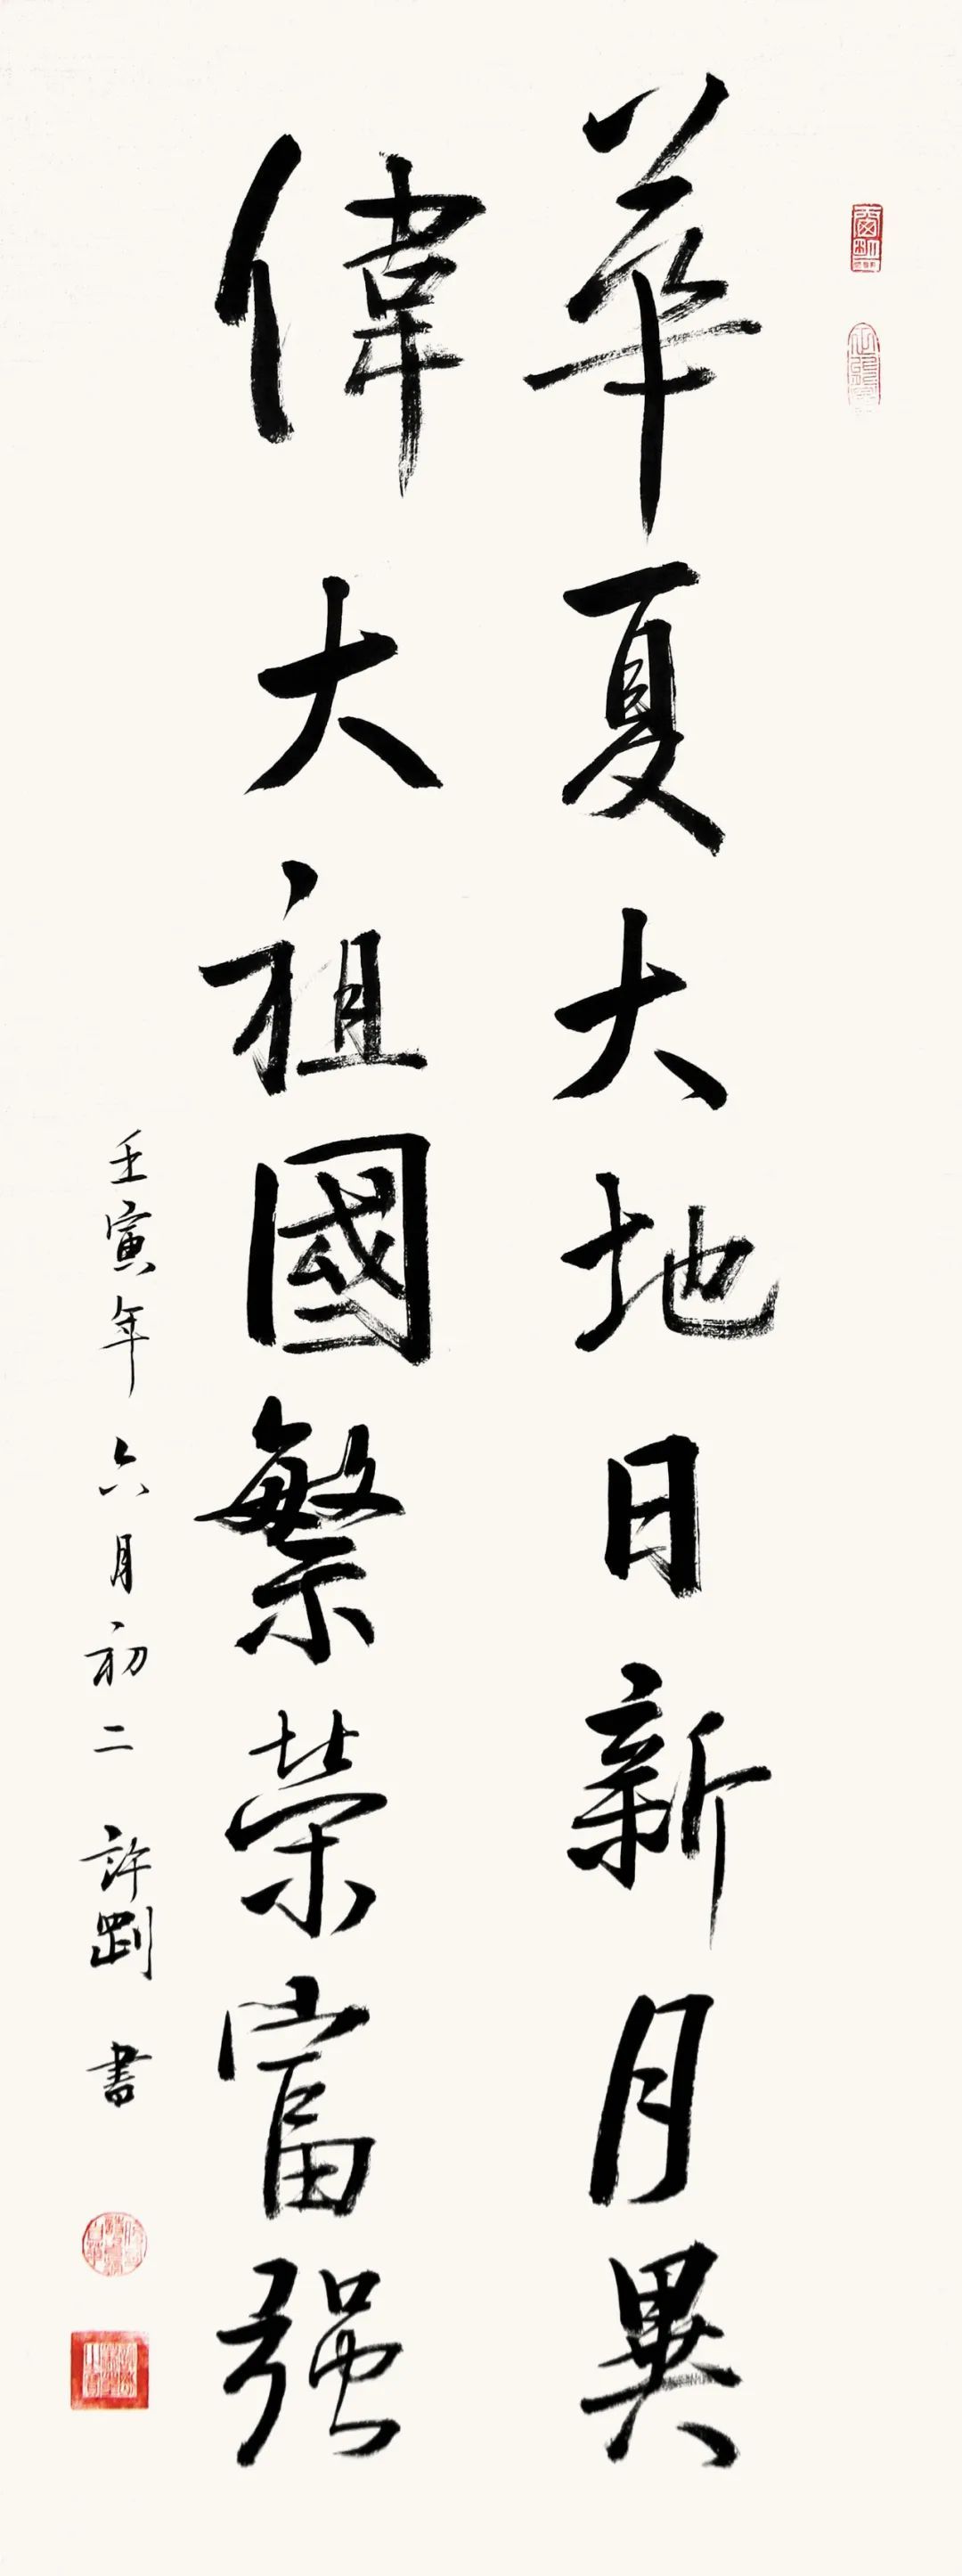 華夏大地日新月異
偉大祖國繁榮富强
壬寅年六月初二 許劉書